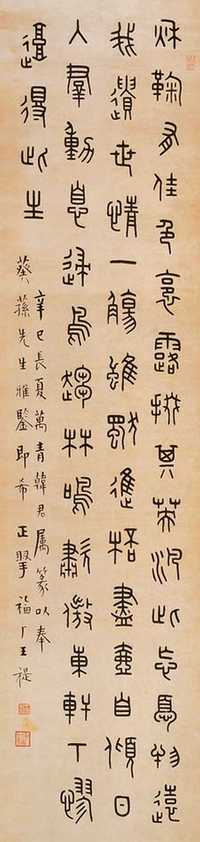 秌鞠有佳色裛露掇其英汎此忘憂物遠
我遺世情一觴雖獨進桮盡壺自傾日
入羣動息歸鳥趨林鳴歗傲東軒下聊
復得此生
辛巳長夏萬青韓君屬篆以奉
葵蓀先生雅鑒即希正掔福厂王禔